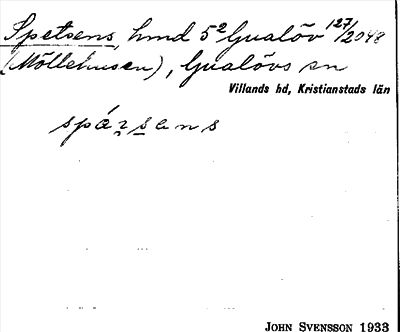 Spetsens, hmd 5² Gualöv 127/2048
(Möllehusen), Gualövs sn
Villands hd, Kristianstads län
spázsans
JOHN SVENSSON 1933